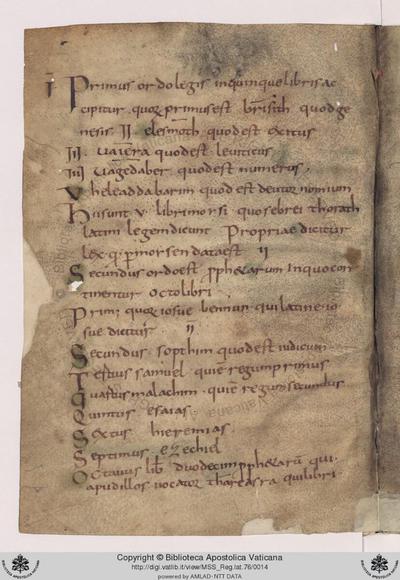 I Primus ordo legis inquinque libris ac
cipitur quoꝝ primus est brisith quod ge
nesis II elesmoth quod est exitus
III. vaiecra quod est leviticus
IIII vagedaber quod est numerus,
V heleaddabarim quod est deuteronomium
hii sunt v. libri morsi quos ebrei thorath
latini legem dicunt Propriae dicitur
lex q. p morsen data est II
Secundus ordo est ppherarum in quo con
tinentur octo libri,
Primi quoꝝ iosue bennun qui latine io
sue dicitur II
Secundus sopthim quod est iudicum
Testius samuel quie regum primus
Quaftus malachim quie regum secundus
Quintus esaias
Sextus hieremias
Septimus ezechiel
Octavus lib. duodecim ppherarū qui.
apud illos vocatoꝝ thareasra qui libri
Copyright © Biblioteca Apostolica Vaticana
http://digi.vatlib.it/view/MSS_Reg.lat.76/0014
powered by AMLAD - NTT DATA